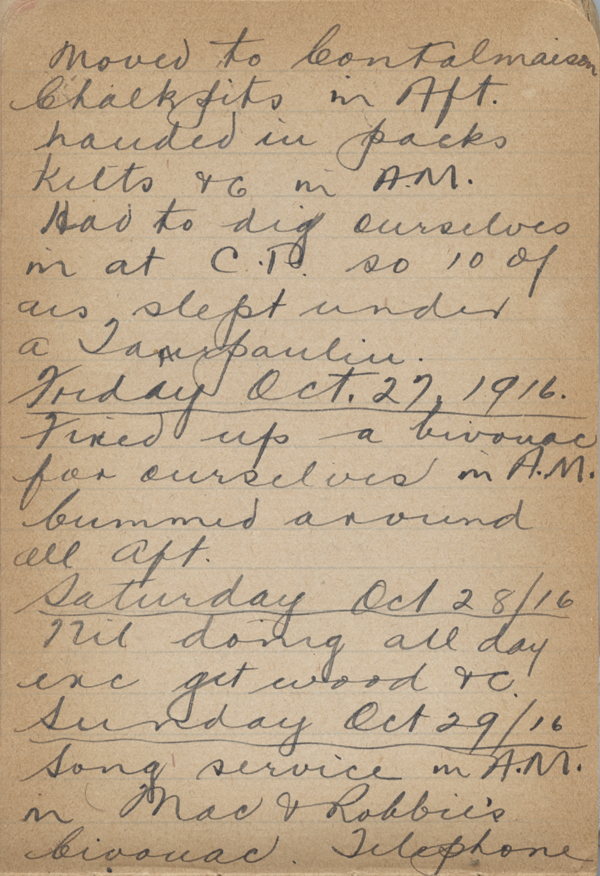 Moved to Contalmaison
Chalkpits in Aft.
handed in packs
Kilts &c in A.M.
Had to dig ourselves
in at C.P. so 10 of
us slept under
a Taurpaulin.
Friday Oct. 27, 1916.
Fixed up a bivouac
for ourselves in A.M.
bummed around
all Aft.
Saturday Oct 28/16
Nil doing all day
exc get wood &c.
Sunday Oct 29/16
Song service in A.M.
in Mac & Robbie's
bivouac. Telephone